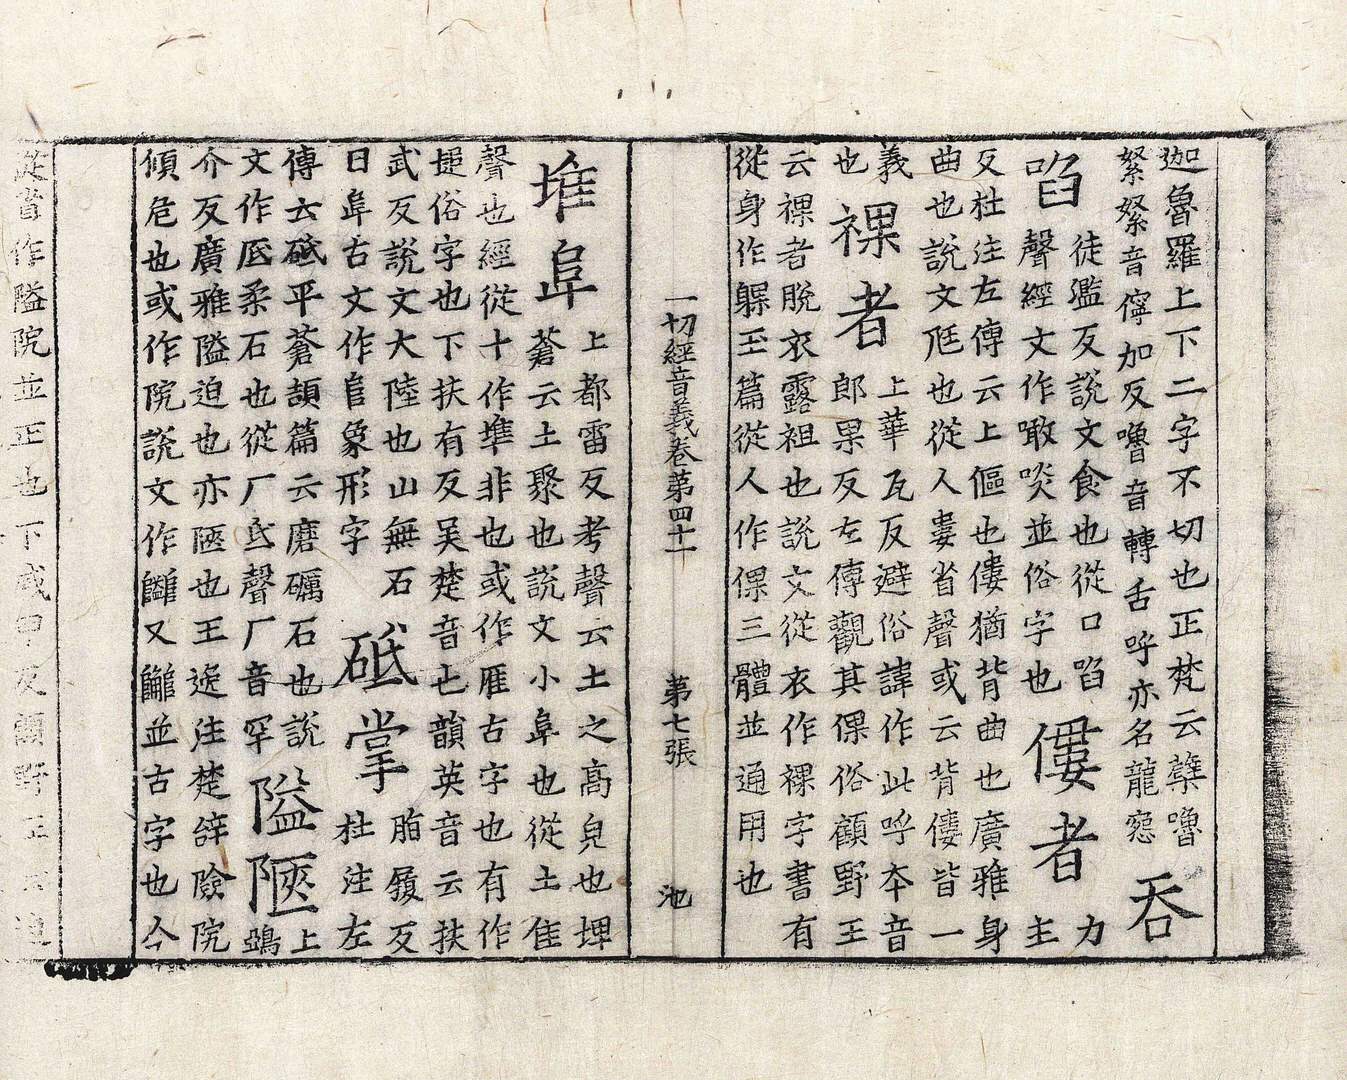 迦魯羅上下二字不切也正梵云櫱嚕
嫛嫛音儜加反嚕音轉舌呼亦名龍㤙
吞
啗
徒濫反説文食也從口啗
聲經文作噉啖並俗字也
僂者
力
主
反杜注左傳云上傴也僂猶背曲也廣雅身
曲也説文尫也從人婁省聲或云背僂皆一
義
也
裸者
上華瓦反避俗諱作此呼夲音
郎果反左傳觀其倮俗顧野王
云裸者脫衣露袒也説文從衣作裸字書有
從身作躶玉篇從人作倮三體並通用也
一切經音義卷第四十一 第七張 池
堆阜
上都雷反考聲云土之高皃也埤
蒼云土聚也説文小阜也從土隹
聲也經從十作凖非也或作䧹古字也有作
㨗俗字也下扶有反吴楚音也韻英音云扶
武反説文大陸也山無石
曰阜古文作𨸏象形字
砥掌
脂履反
杜注左
傳云砥平蒼頡篇云磨礪石也説
文作底柔石也從厂氐聲厂音罕
隘陿
上
鷃
介反廣雅隘迫也亦陿也王逸注楚辝險院
傾危也或作院説文作䦲又𨽀並古字也今
從省作隘院並正也下咸甲反顧野王云道